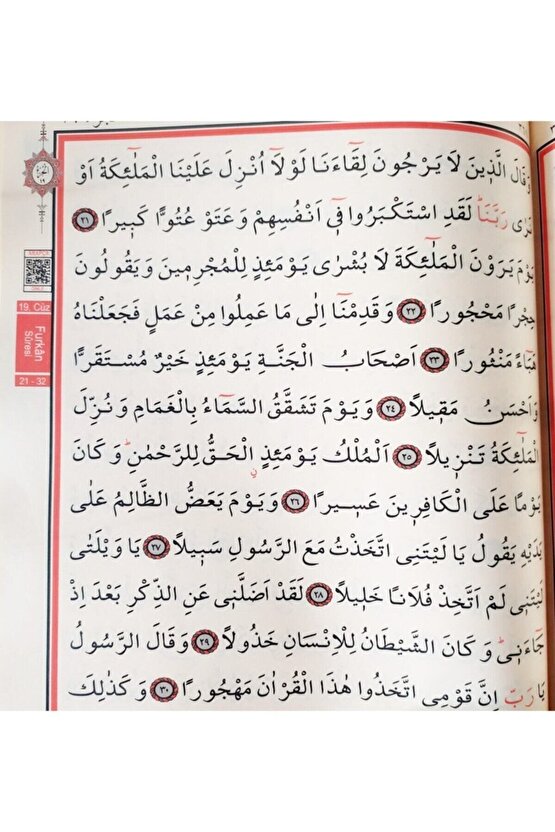 وَقَالَ الَّذِينَ لَا يَرْجُونَ لِقَاءَنَا لَوْلَا اُنْزِلَ عَلَيْنَا الْمَلٰٓئِكَةُ اَوْ
نَرٰى رَبَّنَا لَقَدِ اسْتَكْبَرُوا فٓي اَنْفُسِهِمْ وَعَتَوْ عُتُوًّا كَبِيرًا ٢١
يَوْمَ يَرَوْنَ الْمَلٰٓئِكَةَ لَا بُشْرٰى يَوْمَئِذٍ لِلْمُجْرِمِينَ وَيَقُولُونَ
حِجْرًا مَحْجُورًا ٢٢ وَقَدِمْنَٓا اِلٰى مَا عَمِلُوا مِنْ عَمَلٍ فَجَعَلْنَاهُ
هَبَٓاءً مَنْثُورًا ٢٣ اَصْحَابُ الْجَنَّةِ يَوْمَئِذٍ خَيْرٌ مُسْتَقَرًّا
وَاَحْسَنُ مَقِيلًا ٢٤ وَيَوْمَ تَشَقَّقُ السَّمَٓاءُ بِالْغَمَامِ وَنُزِّلَ
الْمَلٰٓئِكَةُ تَنْزِيلًا ٢٥ اَلْمُلْكُ يَوْمَئِذٍ الْحَقُّ لِلرَّحْمٰنِ وَكَانَ
يَوْمًا عَلَى الْكَافِرِينَ عَسِيرًا ٢٦ وَيَوْمَ يَعَضُّ الظَّالِمُ عَلٰى
يَدَيْهِ يَقُولُ يَا لَيْتَنِي اتَّخَذْتُ مَعَ الرَّسُولِ سَبِيلًا ٢٧ يَا وَيْلَتٰى
لَيْتَنِي لَمْ اَتَّخِذْ فُلَانًا خَلِيلًا ٢٨ لَقَدْ اَضَلَّنِي عَنِ الذِّكْرِ بَعْدَ اِذْ
جَٓاءَنِي وَكَانَ الشَّيْطَانُ لِلْاِنْسَانِ خَذُولًا ٢٩ وَقَالَ الرَّسُولُ
يَا رَبِّ اِنَّ قَوْمِي اتَّخَذُوا هٰذَا الْقُرْاٰنَ مَهْجُورًا ٣٠ وَكَذٰلِكَ
19. Cüz
Furkân
Sûresi
21 - 32